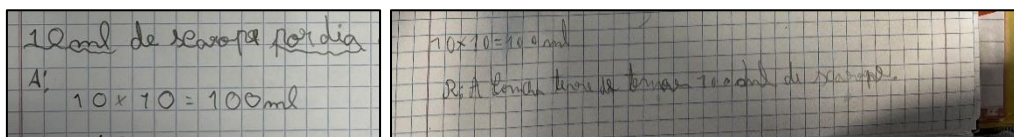 10ml de xarope por dia
A:
10 × 10 = 100ml
10×10=100ml
R: A tomar 100ml de xarope.